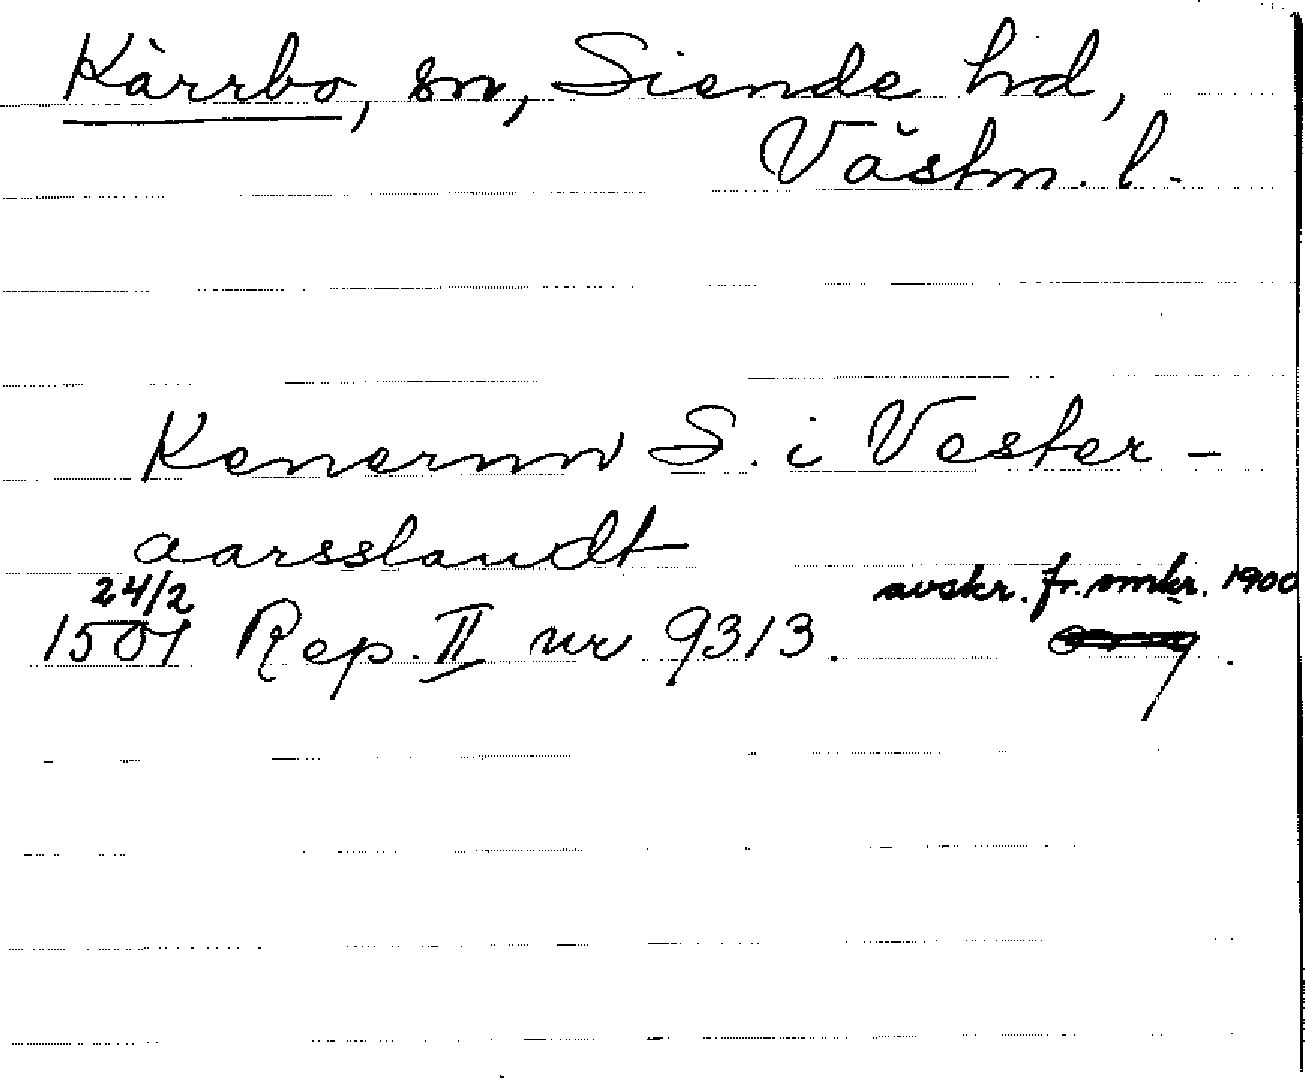 Kärrbo, sn, Siende hd,
Västm. l.
Kenernn S. i Vester-
aarsslandt
24/2 avskr. fr. omkr. 1900
1501 Rep. II nr 9313.